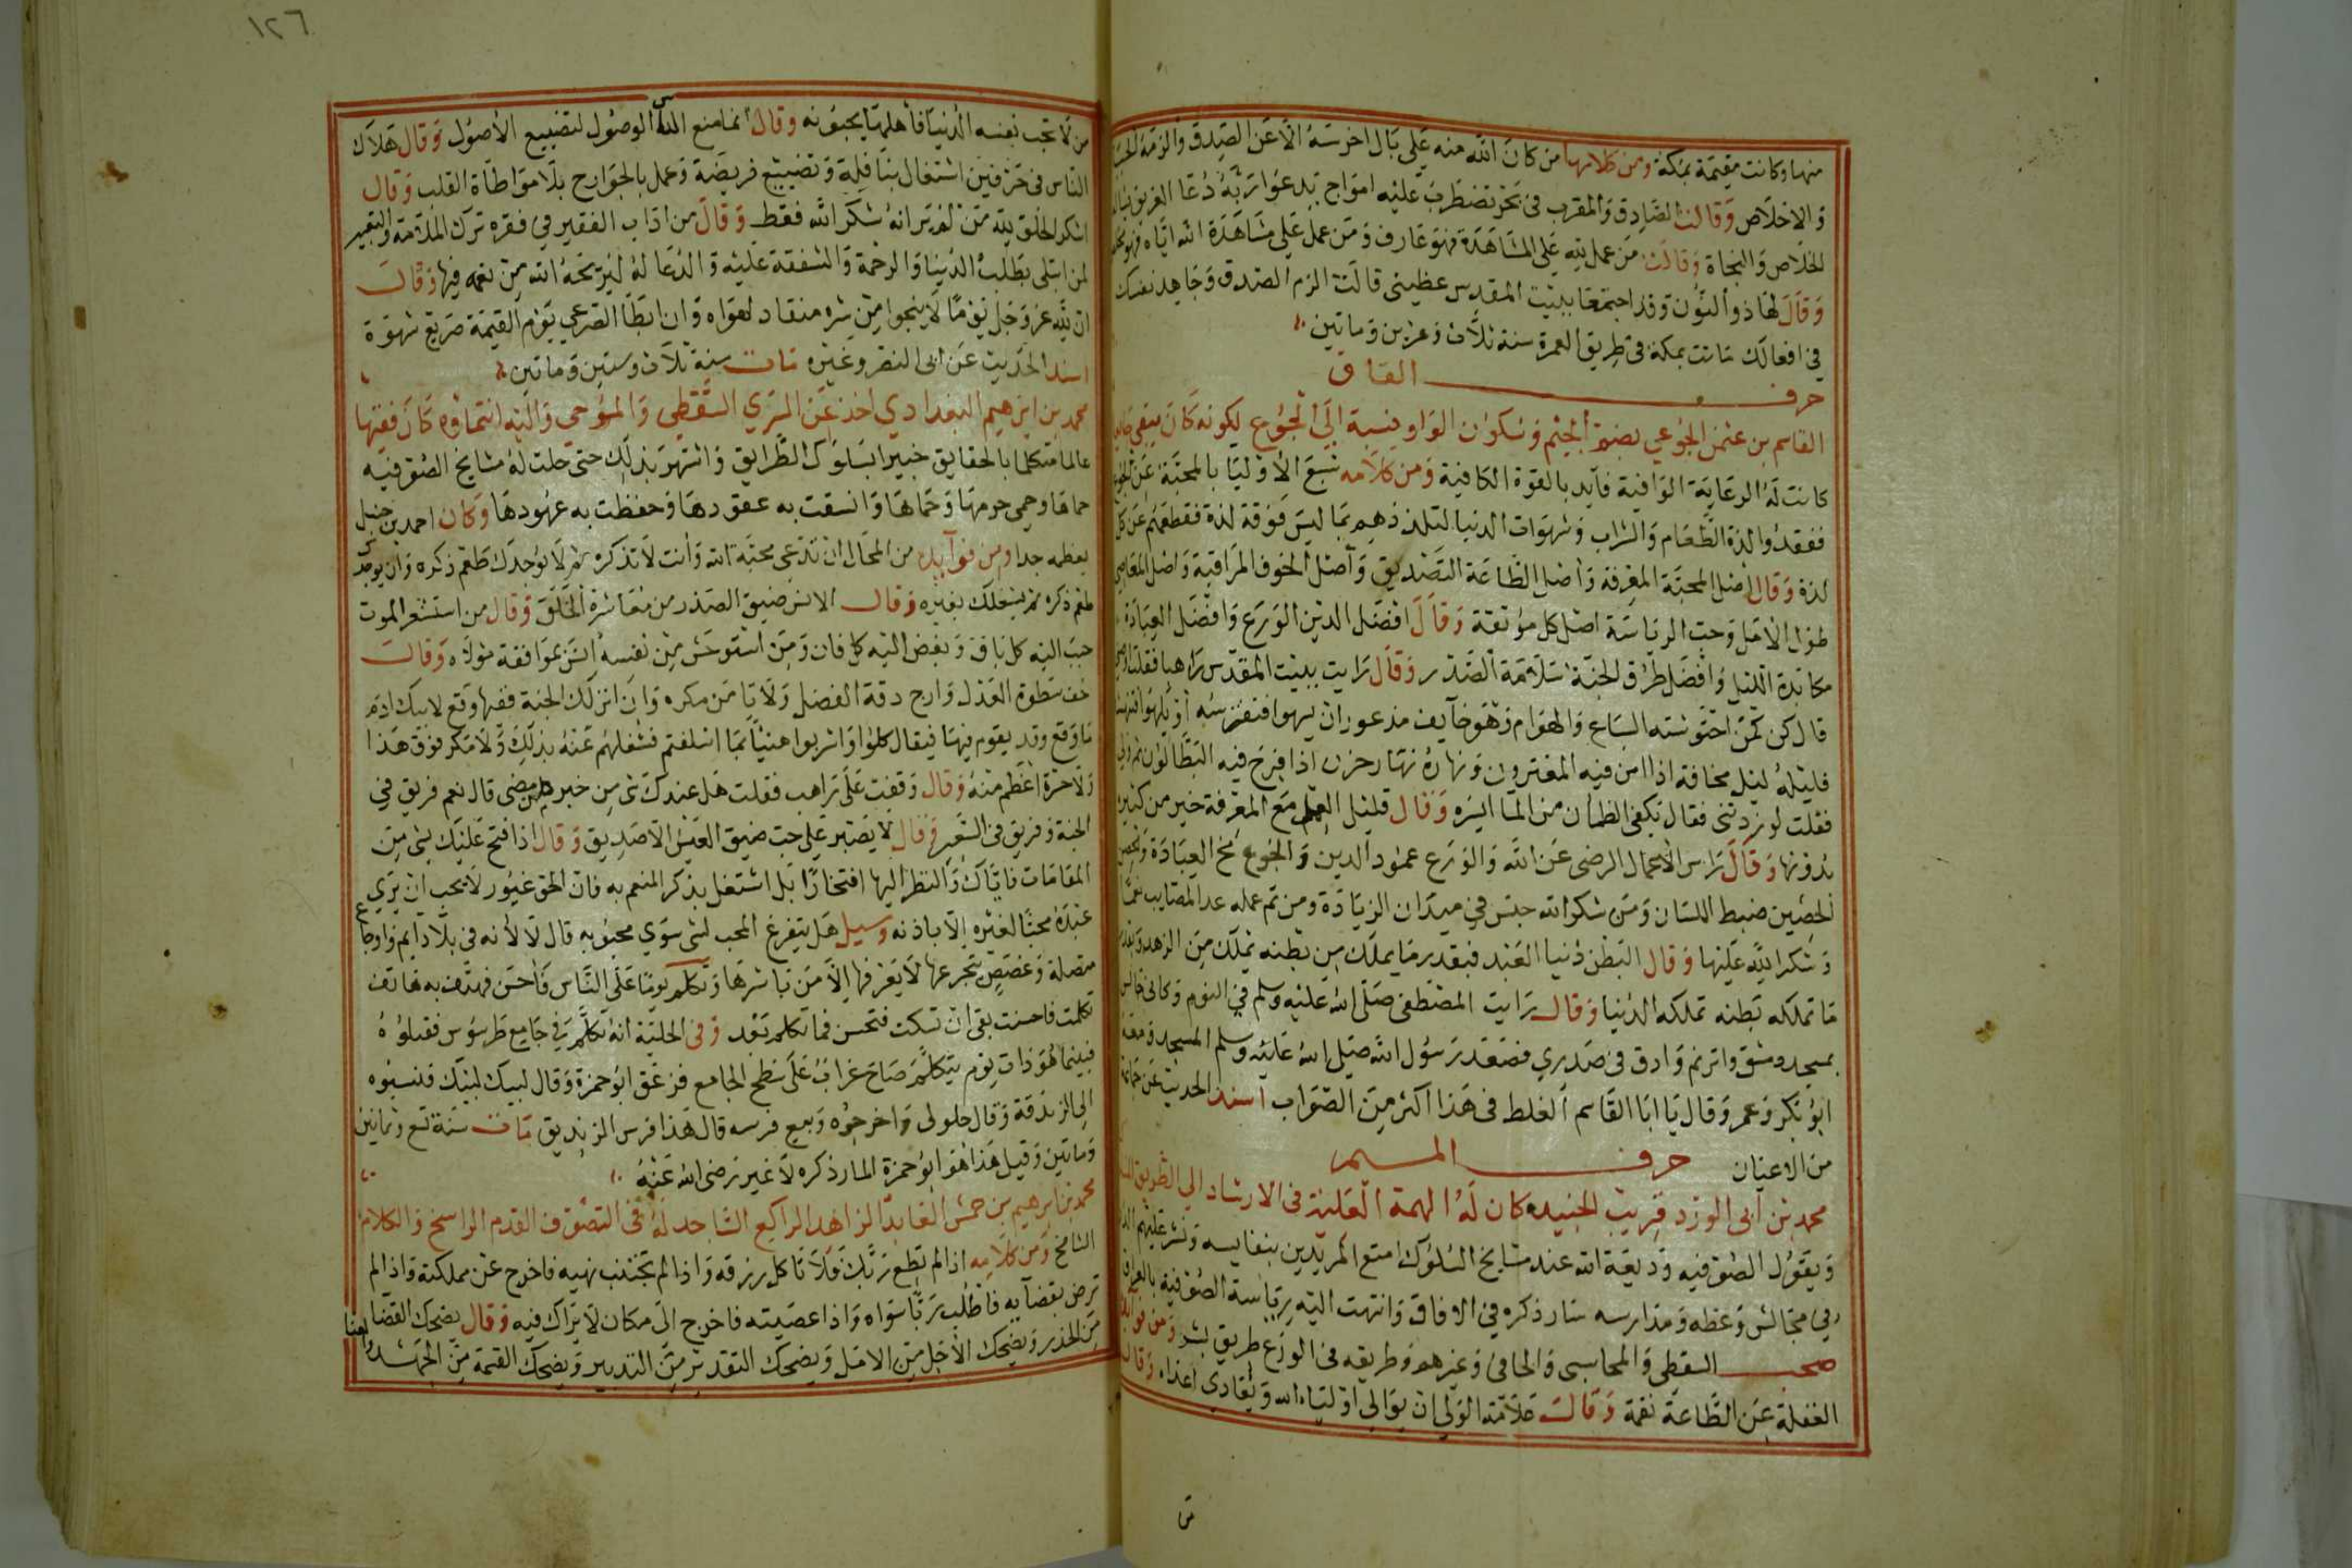 منها وكانت مقيمة بمكة ومن كلامها من كان الله منه على بال اخرسه الا عن الصدق والزمه الحيا
والاخلاص وقالت الصادق والمقرب في بحر تضطرب عليه امواج يدعوا ربه دعا الغريق يسال
الخلاص والنجاة وقالت من عمل لله على المشاهدة فهو عارف ومن عمل على مشاهدة الله اياه فهو مخلص
وقال لها ذو النون وقد اجتمعا ببيت المقدس عظيني قالت الزم الصدق وجاهد نفسك
في افعالك ماتت بمكة في طريق العمرة سنة ثلاث وعشرين وماتين
حرف القاف
القاسم بن عثمن الجوعي بضم الجيم وسكون الواو نسبة الى الجوع لكونه كان يبقى
كانت له الرعاية الوافية فايد بالقوة الكافية ومن كلامه شبع الاوليا بالمحبة عن الجوع
ففقدوا لذة الطعام والشراب وشهوات الدنيا لتلذذهم بما ليس فوقه لذة فقطعهم عن كل
لذة وقال اصل المحبة المعرفة واصل الطاعة التصديق واصل الخوف المراقبة واصل المعاصي
طول الامل وحب الرياسة اصل كل موبقة وقال افضل الدين الورع وافضل العبادة
مكابدة الليل وافضل طرق الجنة سلامة الصدر وقال رايت ببيت المقدس راهبا فقلت اوصني
قال كن كمن احتوشته السباع والهوام فهو خايف مذعور ان يسهوا فتفترسه او يلهوا فتنهشه
فليله ليل مخافة اذا امن فيه المغترون ونهاره نهار حزن اذا فرح فيه البطالون ثم ولى
فقلت لو زدتني فقال يكفي الظمان من الما ايسره وقال قليل العمل مع المعرفة خير من كثيره
بدونها وقال راس الاعمال الرضى عن الله والورع عمود الدين والجوع مخ العبادة والحصن
الحصين ضبط اللسان ومن شكر الله جلس في ميدان الزيادة ومن تم عمله عد المصايب نعما
وشكر لله عليها وقال البطن دنيا العبد فبقدر ما يملك من بطنه يملك من الزهد وبقدر
ما تملكه بطنه تملكه الدنيا وقال رايت المصطفى صلى الله عليه وسلم في النوم وكاني جالس
بمسجد دمشق واترنم وادق في صدري فصعد رسول الله صلى الله عليه وسلم المسجد ومعه
ابو بكر وعمر وقال يا ابا القاسم الغلط في هذا اكثر من الصواب اسند الحديث عن جماعة
من الاعيان حرف الميم
محمد بن ابي الورد قريب الجنيد كان له الهمة العلية في الارشاد الي الطريق
ويقول الصوفيه وديعة الله عند مشايخ السلوك امتع المريدين بنفايسه ونشر عليهم
في مجالس وعظه ومدارسه سار ذكره في الافاق وانتهت اليه رياسة الصوفية بالعراق
صحب السقطي والمحاسبي والحافي وغيرهم وطريقه في الورع طريق بشر ومن فوايده
الغفلة عن الطاعة نقمة وقال علامة الولي ان يوالي اولياء الله ويعادي اعداه وقال
من لا تحب نفسه الدنيا فاهلها يحبونه وقال انما منع الله الوصول لتضييع الاصول وقال هلاك
الناس في حرفين اشتغال بنافلة وتضييع فريضة وعمل بالجوارح بلا مواطاة القلب وقال
اشكر الخلق لله من لم ير انه شكر الله فقط وقال من اداب الفقير في فقره ترك الملامة والتعيير
لمن ابتلي بطلب الدنيا والرحمة والشفقة عليه والدعا له ليريحه الله من تعبه فيها وقال
ان لله عز وجل يوما لا ينجوا من شره منقاد لهواه وان ابطأ الصرعي يوم القيمة صريع شهوة
اسند الحديث عن ابي النضر وغيره مات سنة ثلاث وستين وماتين
محمد بن ابرهيم البغدادي اخذ عن السري السقطي والمسوحي واليه انتماؤه كان فقيها
عالما متكلما بالحقايق خبيرا بسلوك الطرايق واشتهر بذلك حتى حلت له مشايخ الصوفيه
حماها وحمي حومتها وحماها واتسقت به عقودها وحفظت به عهودها وكان احمد بن حنبل
يعظمه جدا ومن فوايده من المحال ان تدعي محبة الله وانت لا تذكره ثم لا يوجدك طعم ذكره وان يوجدك
طعم ذكره ثم يشغلك بغيره وقال الانس ضيق الصدر من معاشرة الخلق وقال من استشعر الموت
حبب اليه كل باق وبغض اليه كل فان ومن استوحش من نفسه انس بموافقة مولاه وقال
خف سطوة العدل وارج دقة الفضل ولا تامن مكره وان انزلك الجنة ففيها وقع لابيك ادم
ما وقع وقد يقوم فيها فيقال كلوا واشربوا هنيئا بما اسلفتم فشغلهم عنه بذلك ولا مكر فوق هذا
ولا حسرة اعظم منه وقال وقفت على راهب فقلت هل عندك شي من خبر من مضى قال نعم فريق في
الجنة وفريق في السعير وقال لا يصبر على حب ضيق العيش الا صديق وقال اذا فتح عليك بشي من
المقامات فاياك والنظر اليها افتخارا بل اشتغل بذكر المنعم به فان الحق غيور لا يحب ان يري
عبده محبا لغيره الا باذنه وسيل هل يتفرغ المحب لشي سوي محبوبه قال لا لانه في بلا دايم واوجاع
متصلة وغصص يتجرعها لا يعرفها الا من باشرها وتكلم يوما على الناس فاحسن فهتف به هاتف
تكلمت فاحسنت بقي ان تسكت فتحسن فما تكلم بعد وفي الحلية انه تكلم في جامع طرسوس فقبلوه
فبينما هو ذات يوم يتكلم صاح غراب على سطح الجامع فزعق ابو حمزة وقال لبيك لبيك فنسبوه
الى الزندقة وقال حلولي واخرجوه وبيع فرسه قال هذا فرس الزنديق مات سنة تسع وثمانين
وماتين وقيل هذا هو ابو حمزة المار ذكره لا غير رضى الله عنه
محمد بن ابرهيم بن حمش العابد الزاهد الراكع الساجد له في التصوف القدم الراسخ والكلام
الشامخ ومن كلامه اذا لم تطع ربك فلا تاكل رزقه واذا لم تجتنب نهيه فاخرج عن مملكته واذا لم
ترض بقضايه فاطلب ربا سواه واذا عصيته فاخرج الى مكان لا يراك فيه وقال يضحك القضا
من الحذر ويضحك الاجل من الامل ويضحك التقدير من التدبير ويضحك القسمة من الجهد